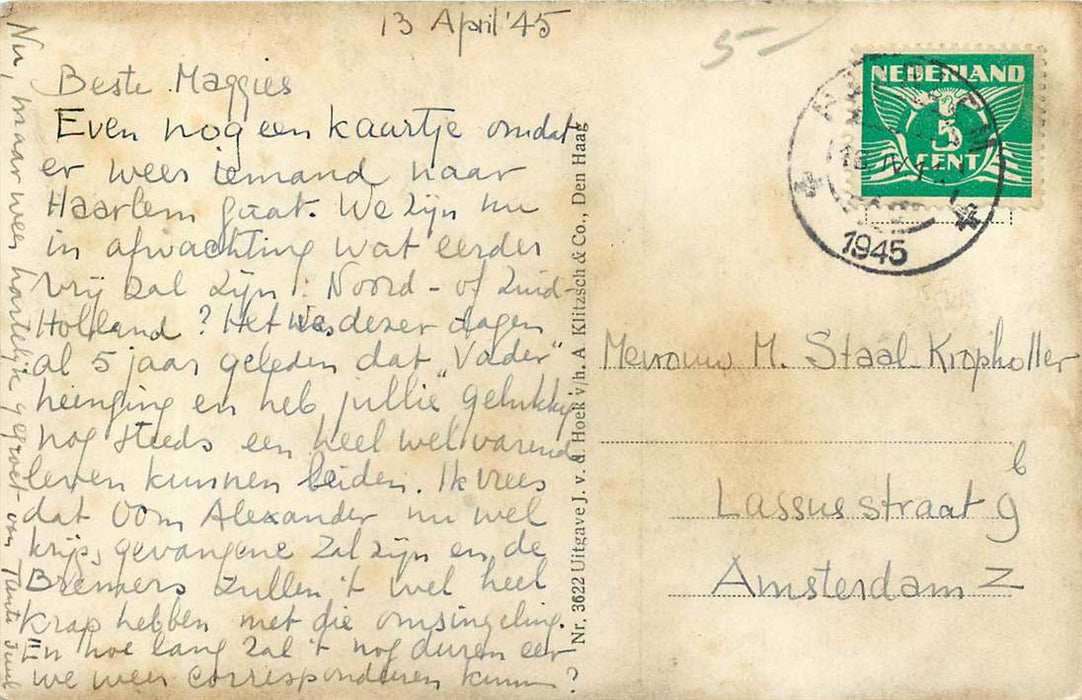 13 April '45
Beste Maggies
Even nog een kaartje omdat
er weer iemand naar
Haarlem gaat. We zijn nu
in afwachting wat eerder
vrij zal zijn: Noord- of Zuid-
Holland? Het was dezer dagen
al 5 jaar geleden dat "Vader"
heenging en heb jullie gelukkig
nog steeds een heel wel varend
leven kunnen leiden. Ik vrees
dat Oom Alexander nu wel
krijgsgevangene zal zijn en de
Bremers zullen 't wel heel
krap hebben met die omsingeling.
En hoe lang zal 't nog duren eer
we weer corresponderen kunnen?
Nu, maar weer hartelijk gegroet van Tante Juul
Nr. 3622 Uitgave J. v. d. Hoek v/h. A Klitzsch & Co., Den Haag
5-
NEDERLAND
5
CENT
1945
Mevrouw M. Staal-Kropholler
6
Lassusstraat 9
Amsterdam Z